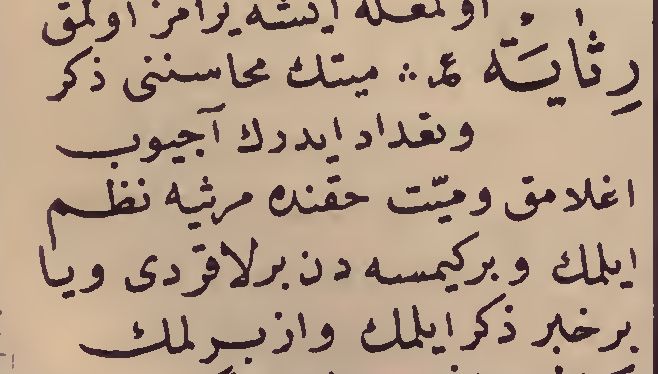 اولمغله ايشه يرامز اولمق
رِثَايَسَّه عـ ∴ ميتك محاسننى ذكر
وتعداد ايدرك آجيوب
اغلامق وميّت حقنده مرثيه نظم
ايلمك وبركيمسه دن برلاقردى ويا
برخبر ذكر ايلمك وازبرلمك